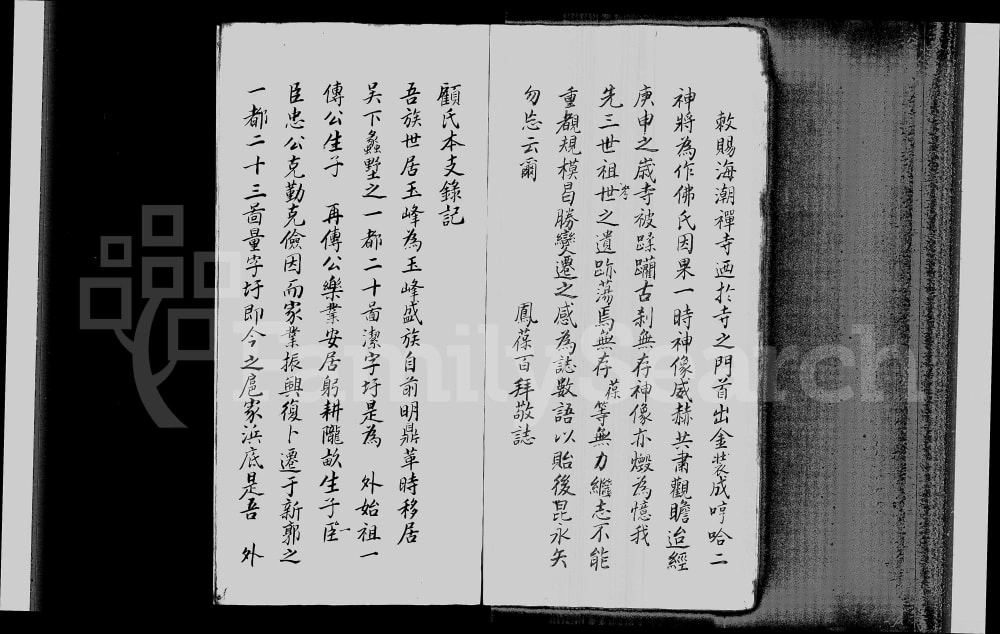 敕賜海潮禪寺迺於寺之門首出金裝成哼哈二
神將為作佛氏因果一時神像威赫共肅觀瞻迨經
庚申之歲寺被蹂躪古剎無存神像亦燬為憶我
先三世祖考世之遺跡蕩焉無存葆等無力繼志不能
重覩規模曷勝變遷之感為誌數語以貽後昆永矢
勿忘云爾
鳳葆百拜敬誌
顧氏本支錄記
吾族世居玉峰為玉峰盛族自前明鼎革時移居
吳下蠡墅之一都二十啚潔字圩是為 外始祖一
傳公生子 再傳公樂業安居躬耕隴畝生子臣一
臣忠公克勤克儉因而家業振興復卜遷于新郭之
一都二十三啚量字圩即今之扈家浜底是吾 外
FamilySearch